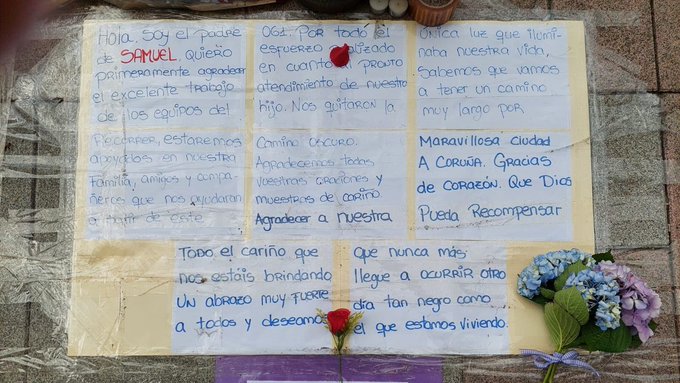 Hola. Soy el padre
de SAMUEL. Quiero
primeramente agradecer
el excelente trabajo
de los equipos del
061. Por todo el
esfuerzo realizado
en cuanto al pronto
atendimiento de nuestro
hijo. Nos quitaron la
única luz que ilumi-
naba nuestra vida,
Sabemos que vamos
a tener un camino
muy largo por
Recorrer, estaremos
apoyados en nuestra
Familia, amigos y compa-
ñeros que nos ayudaran
a partir de este
Camino oscuro.
Agradecemos todas
vuestras oraciones y
muestras de cariño
Agradecer a nuestra
Maravillosa ciudad
A CORUÑA. Gracias
de corazón. Que Dios
Pueda Recompensar
Todo el cariño que
nos estáis brindando
Un abrazo muy fuerte
a todos y deseamos
que nunca más
llegue a ocurrir otro
día tan negro como
el que estamos viviendo.